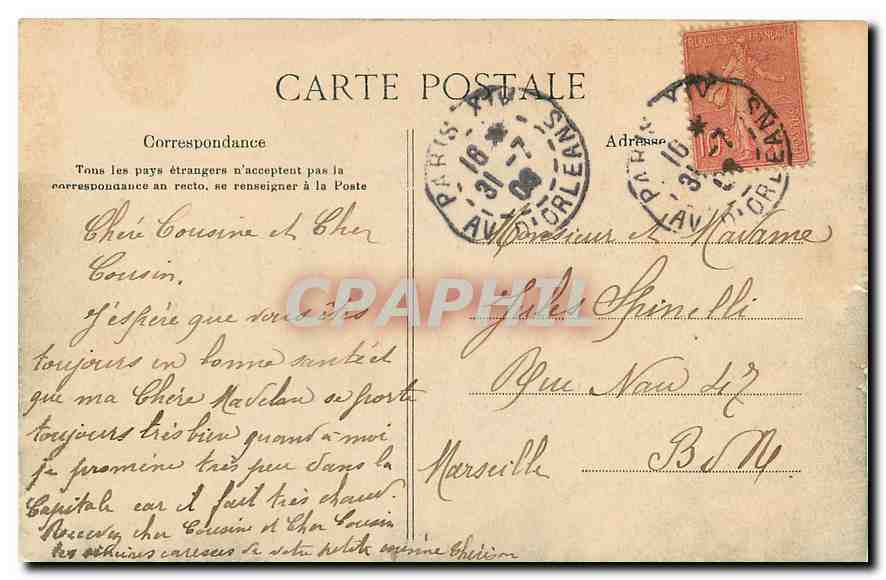 CARTE POSTALE
Correspondance
Tous les pays étrangers n'acceptent pas la
correspondance au recto, se renseigner à la Poste
Chère Cousine et Cher
Cousin,
J'espère que vous êtes
toujours en bonne santé et
que ma Chère Madelau se porte
toujours très bien quand à moi
je promène très peu dans la
Capitale car il fait très chaud.
Recevez cher Cousine et Cher Cousin
les caresses de votre petite cousine
Adresse
Monsieur et Madame
Jules Spinelli
Rue Nau 47
Marseille B d R
PARIS XIV
16
31 -7
08
AV. D'ORLEANS
PARIS XIV
16
31 -7
08
AV. D'ORLEANS
CPAPHIL